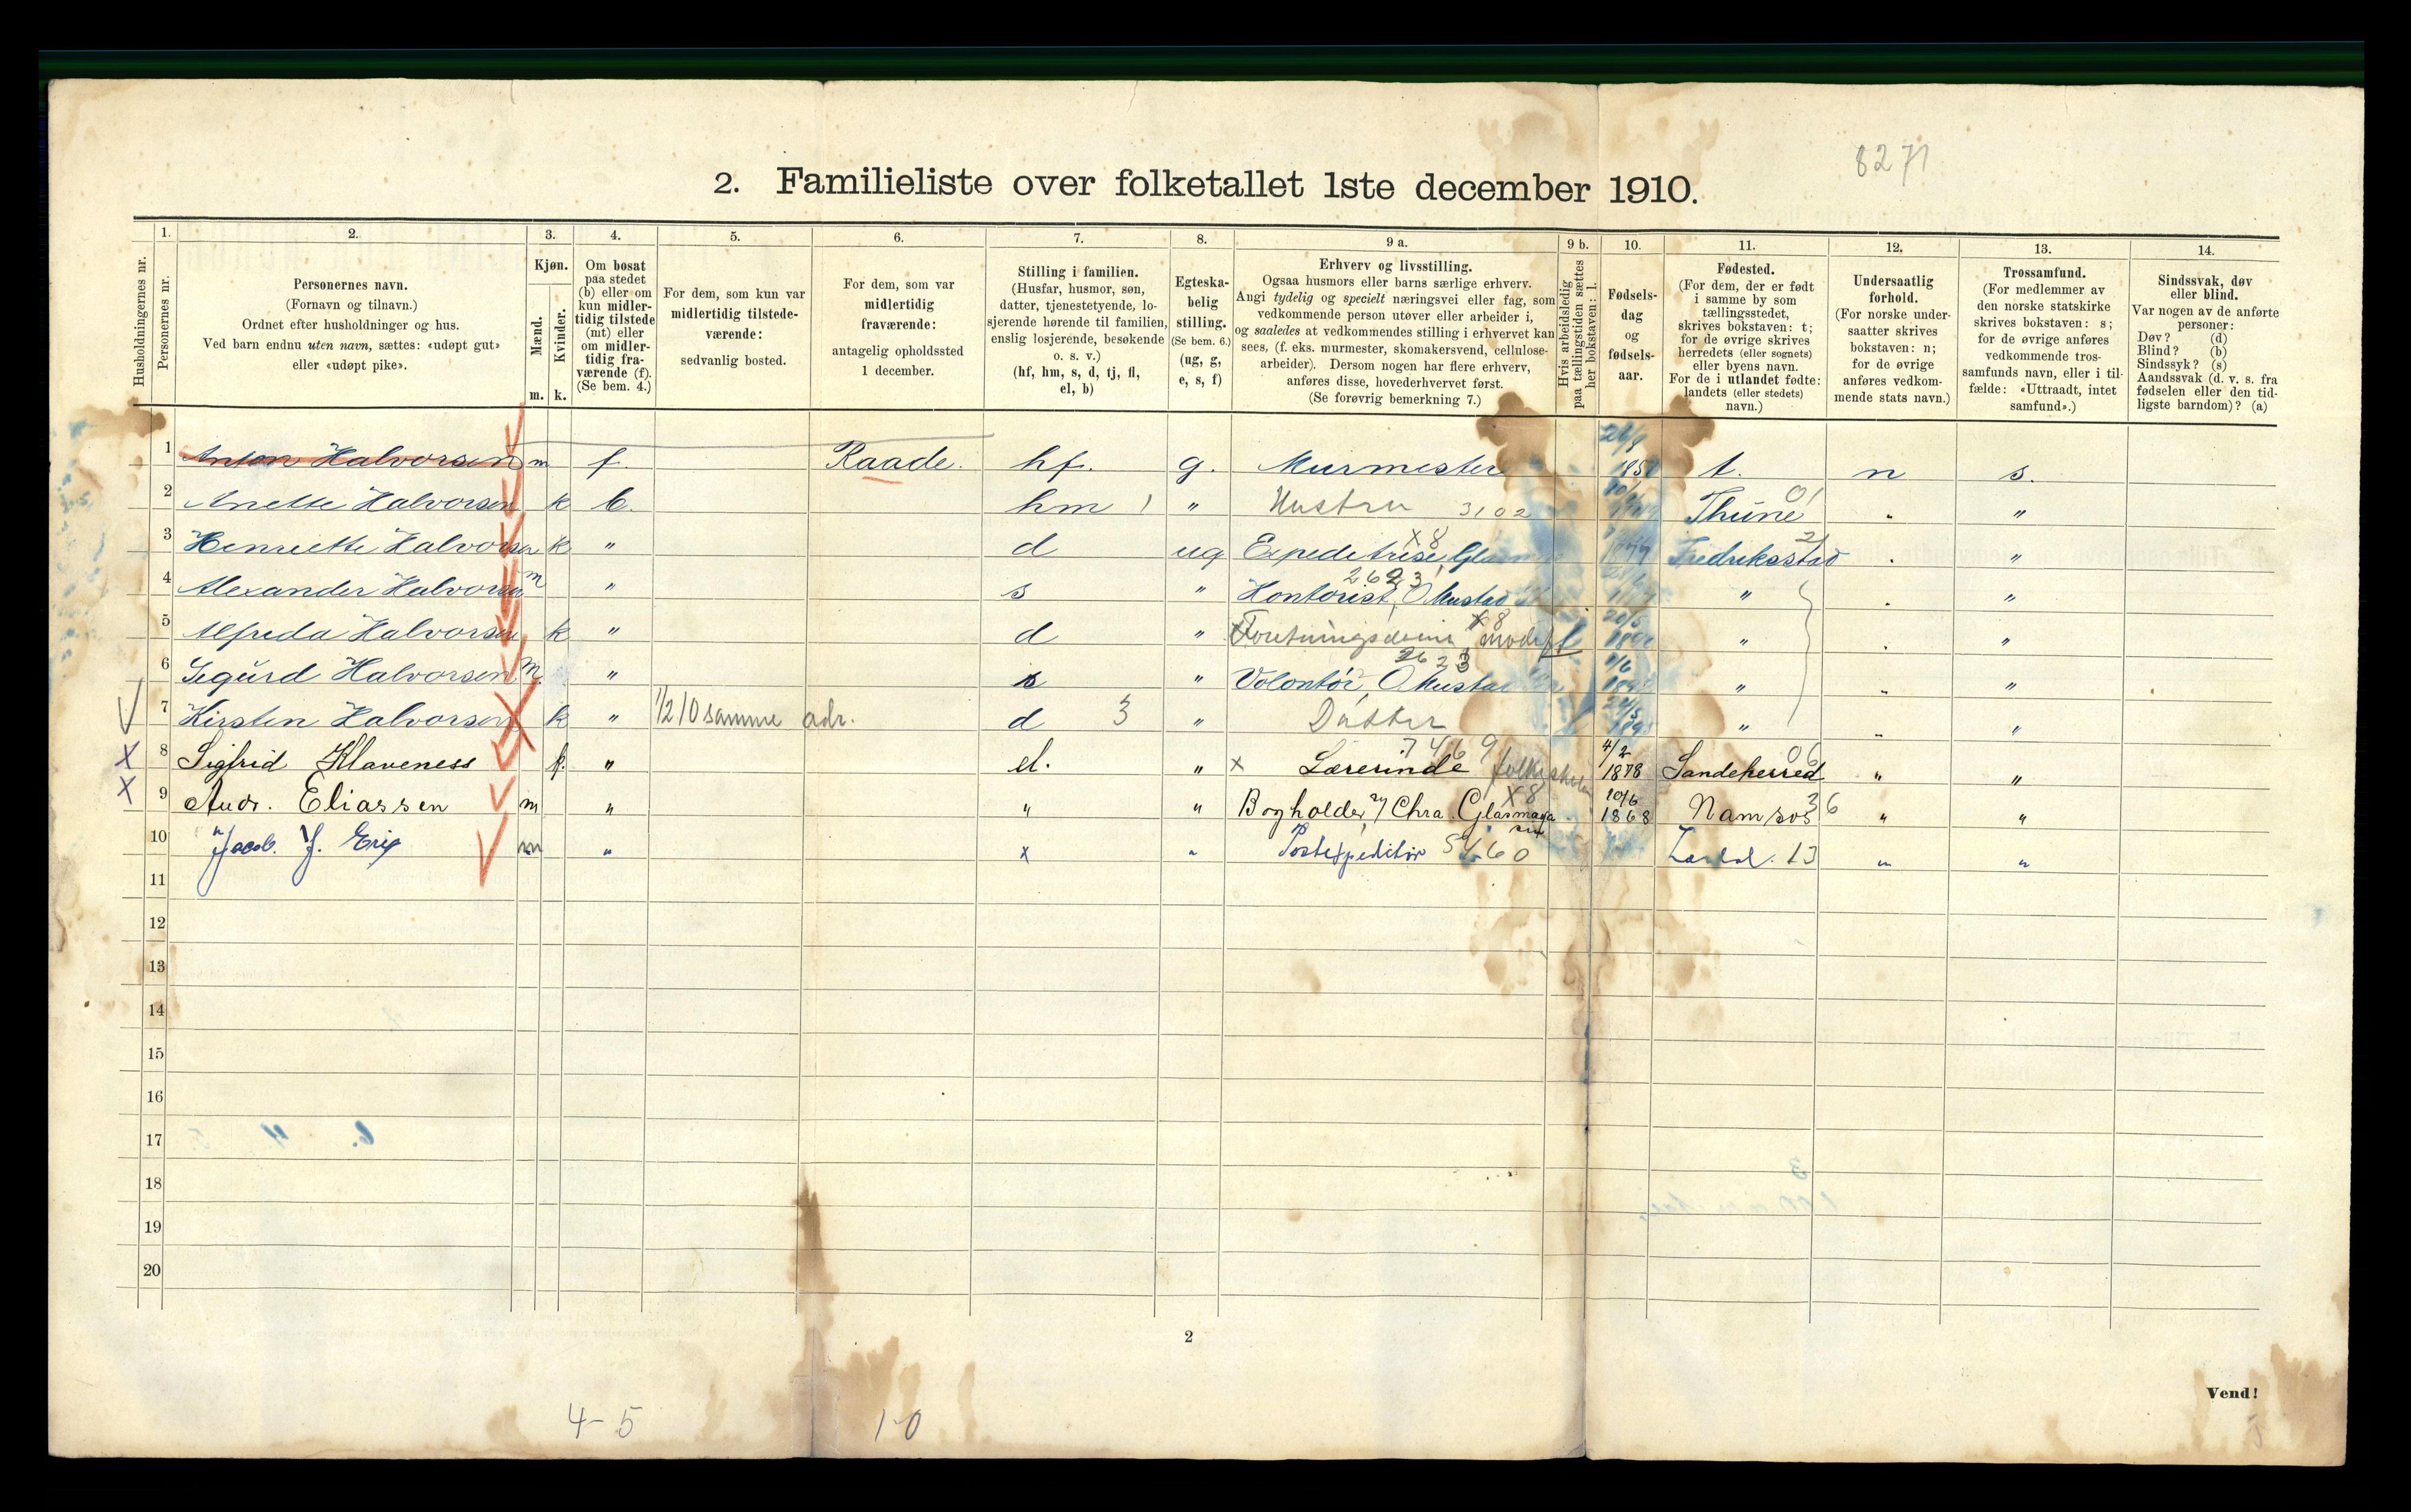 8271
2. Familieliste over folketallet 1ste december 1910.
1. 2. 3. 4. 5. 6. 7. 8. 9 a. 9 b. 10. 11. 12. 13. 14.
Husholdningernes nr.
Personernes nr.
Personernes navn.
(Fornavn og tilnavn.)
Ordnet efter husholdninger og hus.
Ved barn endnu uten navn, sættes: «udøpt gut»
eller «udøpt pike».
Kjøn.
Mænd.
Kvinder.
m. k.
Om bosat
paa stedet
(b) eller om
kun midler-
tidig tilstede
(mt) eller
om midler-
tidig fra-
værende (f).
(Se bem. 4.)
For dem, som kun var
midlertidig tilstede-
værende:
sedvanlig bosted.
For dem, som var
midlertidig
fraværende:
antagelig opholdssted
1 december.
Stilling i familien.
(Husfar, husmor, søn,
datter, tjenestetyende, lo-
sjerende hørende til familien,
enslig losjerende, besøkende
o. s. v.)
(hf, hm, s, d, tj, fl,
el, b)
Egteska-
belig
stilling.
(Se bem. 6.)
(ug, g,
e, s, f)
Erhverv og livsstilling.
Ogsaa husmors eller barns særlige erhverv.
Angi tydelig og specielt næringsvei eller fag, som
vedkommende person utøver eller arbeider i,
og saaledes at vedkommendes stilling i erhvervet kan
sees, (f. eks. murmester, skomakersvend, cellulose-
arbeider). Dersom nogen har flere erhverv,
anføres disse, hovederhvervet først.
(Se forøvrig bemerkning 7.)
Hvis arbeidsledig
paa tællingstiden sættes
her bokstaven: l.
Fødsels-
dag
og
fødsels-
aar.
Fødested.
(For dem, der er født
i samme by som
tællingsstedet,
skrives bokstaven: t;
for de øvrige skrives
herredets (eller sognets)
eller byens navn.
For de i utlandet fødte:
landets (eller stedets)
navn.)
Undersaatlig
forhold.
(For norske under-
saatter skrives
bokstaven: n;
for de øvrige
anføres vedkom-
mende stats navn.)
Trossamfund.
(For medlemmer av
den norske statskirke
skrives bokstaven: s;
for de øvrige anføres
vedkommende tros-
samfunds navn, eller i til-
fælde: «Uttraadt, intet
samfund».)
Sindssvak, døv
eller blind.
Var nogen av de anførte
personer:
Døv? (d)
Blind? (b)
Sindssyk? (s)
Aandssvak (d. v. s. fra
fødselen eller den tid-
ligste barndom)? (a)
1 Anton Halvorsen m f. Raade. hf. g. Murmester t. n s.
2 Anette Halvorsen k b. hm 1 " Hustru 3102 Thune 01 " "
3 Henriette Halvorsen k " d ug Expeditrise, X8 Fredriksstad " "
4 Alexander Halvorsen m " s " Kontorist, O Mustad 2623 " " "
5 Alfreda Halvorsen k " d " X8 l 20/5 " " "
6 Sigurd Halvorsen m. " s " Volontør, O Mustad 2623 " " "
7 Kirsten Halvorsen k " 1/12 10 samme adr. d 3 " Datter " " "
8 Sigfrid Klaveness k. " el. " x Lærerinde folkeskolen 7469 4/2 1878 Sandeherred 06 " "
9 Andr. Eliassen m " " " Bogholder, Chra. Glasmagasin X8 10/6 1868 Namsos 36 " "
10 Jacob. J. Erig m " x " Postexpeditør 5460 13 " "
11
12
13
14
15
16
17
18
19
20
2
Vend!
4-5 1-0